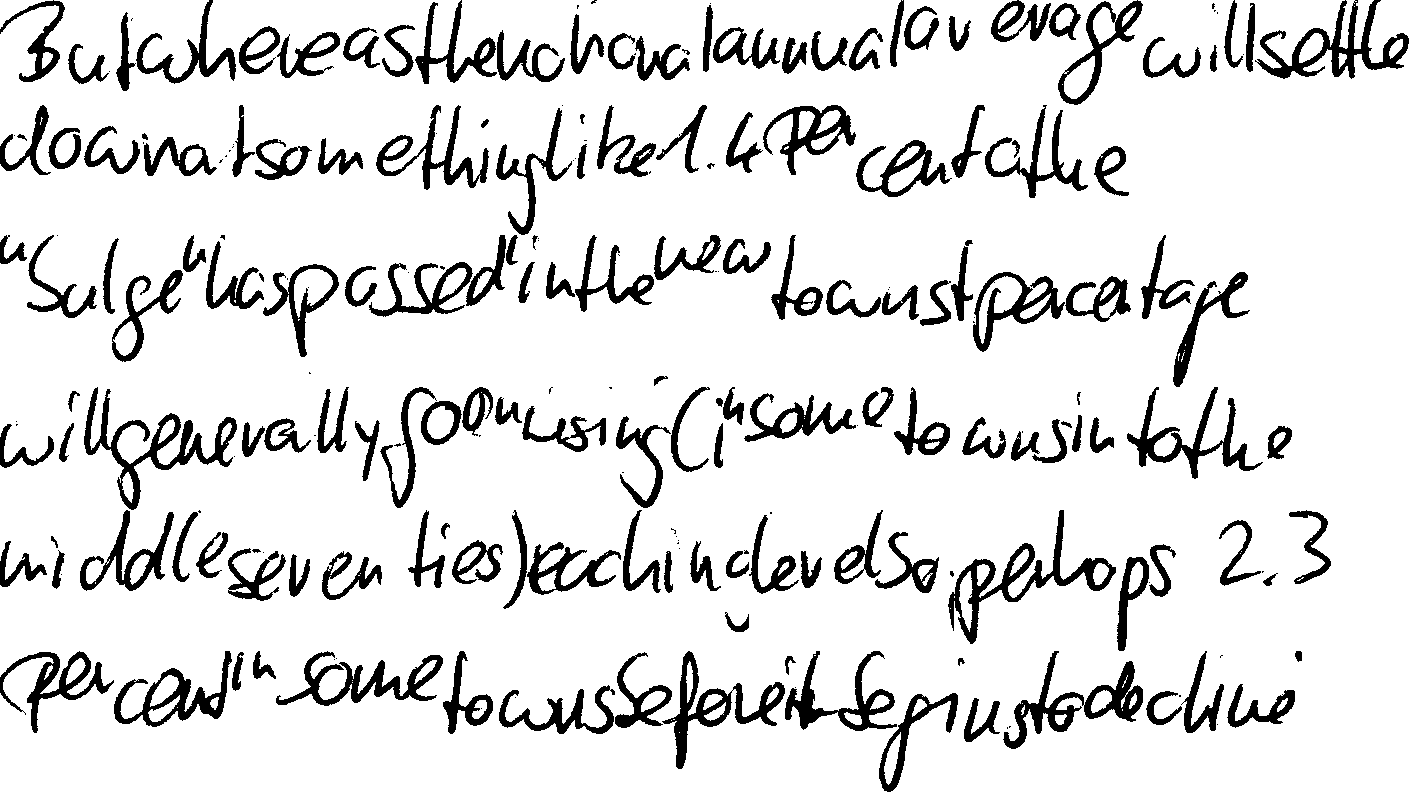 But whereas the national annual average will settle
down at something like 1.4 per cent a the
"Bulge" has passed in the new towns t percentage
will generally go on rising (in some towns into the
middle seventies) reaching levels o perhaps 2.3
per cent in some towns before it begins to decline